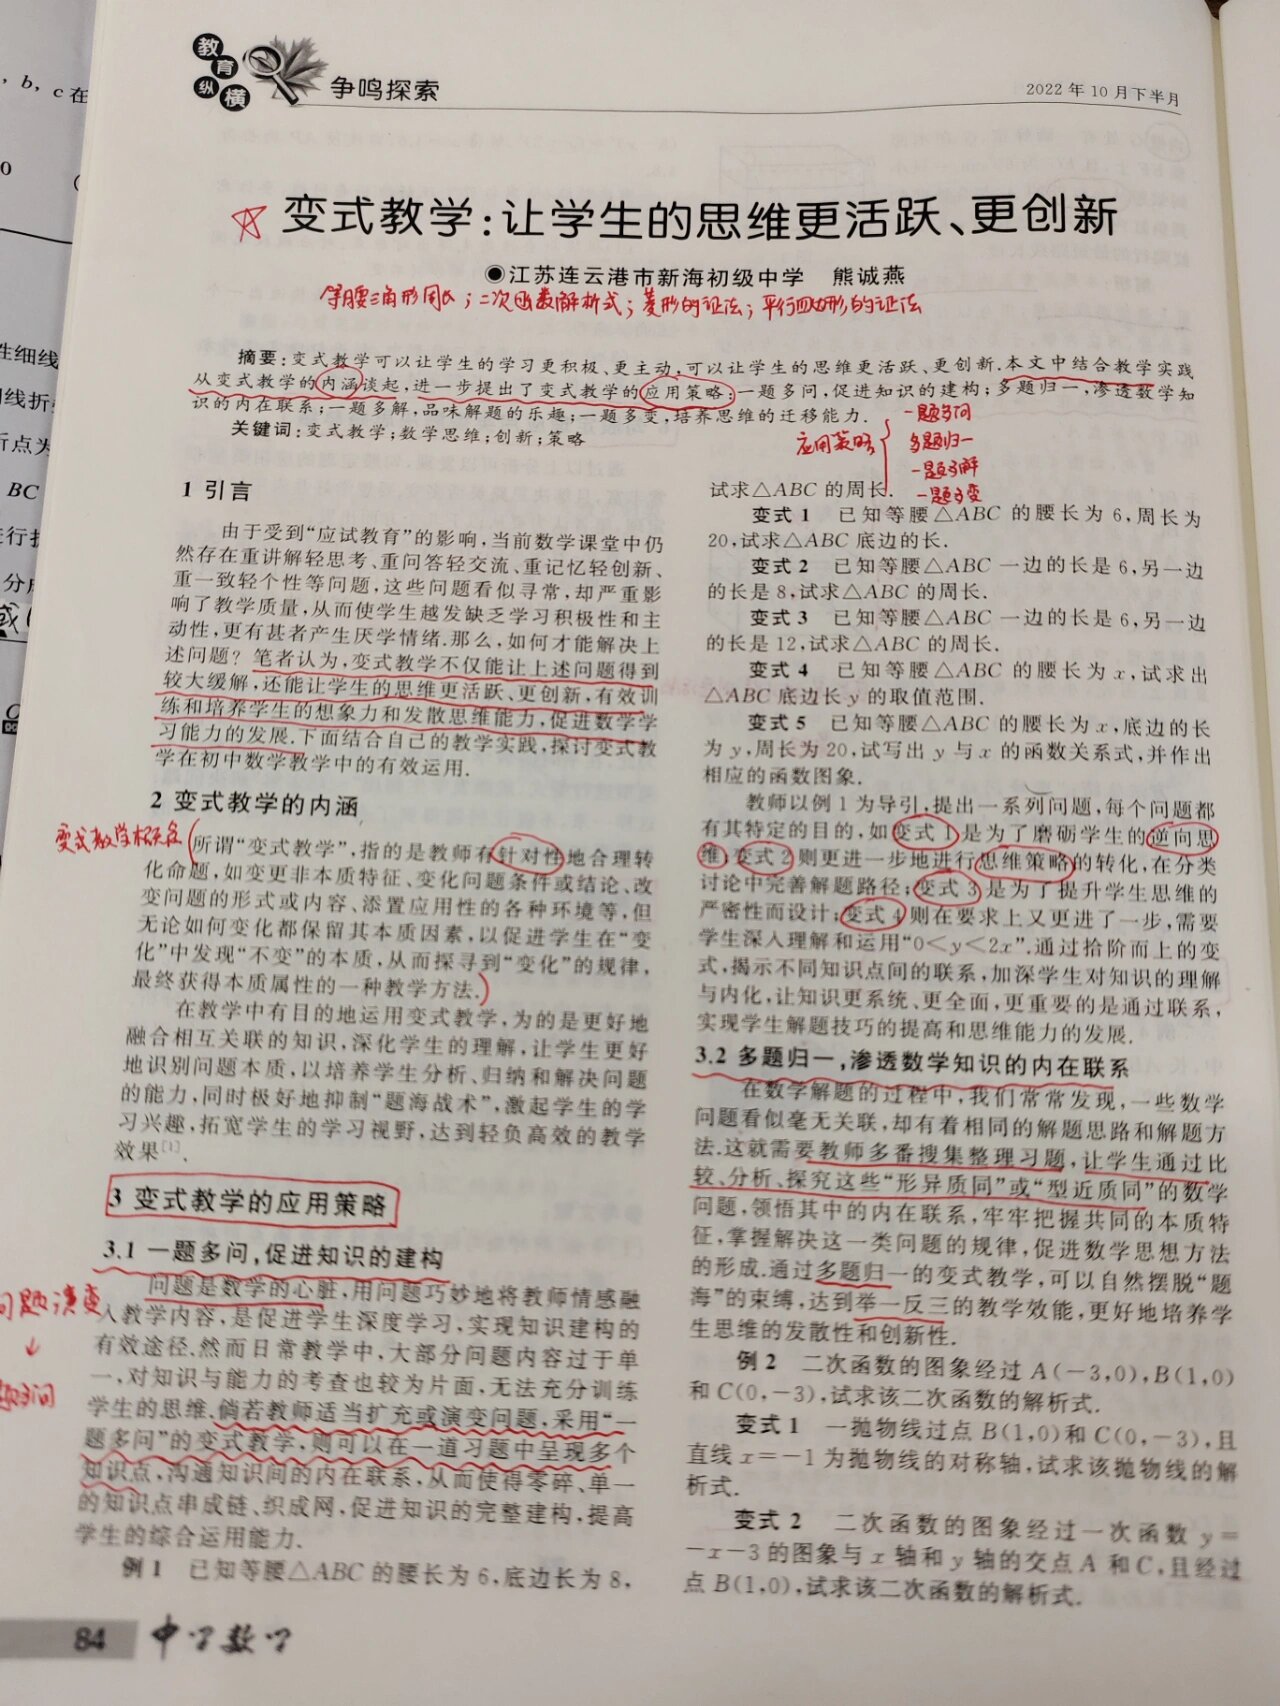 教育纵横
争鸣探索
2022年10月下半月
变式教学:让学生的思维更活跃、更创新
●江苏连云港市新海初级中学 熊诚燕
等腰三角形周长;二次函数解析式;菱形的证法;平行四边形的证法
摘要:变式教学可以让学生的学习更积极、更主动;可以让学生的思维更活跃、更创新.本文中结合教学实践
从变式教学的内涵谈起,进一步提出了变式教学的应用策略:一题多问,促进知识的建构;多题归一,渗透数学知
识的内在联系;一题多解,品味解题的乐趣;一题多变,培养思维的迁移能力.
关键词:变式教学;数学思维;创新;策略
应用策略
一题多问
多题归一
一题多解
一题多变
1 引言
由于受到“应试教育”的影响,当前数学课堂中仍
然存在重讲解轻思考、重问答轻交流、重记忆轻创新、
重一致轻个性等问题,这些问题看似寻常,却严重影
响了教学质量,从而使学生越发缺乏学习积极性和主
动性,更有甚者产生厌学情绪.那么,如何才能解决上
述问题?笔者认为,变式教学不仅能让上述问题得到
较大缓解,还能让学生的思维更活跃、更创新,有效训
练和培养学生的想象力和发散思维能力,促进数学学
习能力的发展.下面结合自己的教学实践,探讨变式教
学在初中数学教学中的有效运用.
2 变式教学的内涵
变式教学概念
所谓“变式教学”,指的是教师有针对性地合理转
化命题,如变更非本质特征、变化问题条件或结论、改
变问题的形式或内容、添置应用性的各种环境等,但
无论如何变化都保留其本质因素,以促进学生在“变
化”中发现“不变”的本质,从而探寻到“变化”的规律,
最终获得本质属性的一种教学方法.
在教学中有目的地运用变式教学,为的是更好地
融合相互关联的知识,深化学生的理解,让学生更好
地识别问题本质,以培养学生分析、归纳和解决问题
的能力,同时极好地抑制“题海战术”,激起学生的学
习兴趣,拓宽学生的学习视野,达到轻负高效的教学
效果[1].
3 变式教学的应用策略
3.1 一题多问,促进知识的建构
问题演变
↓
题多问
问题是数学的心脏,用问题巧妙地将教师情感融
入教学内容,是促进学生深度学习,实现知识建构的
有效途径.然而日常教学中,大部分问题内容过于单
一,对知识与能力的考查也较为片面,无法充分训练
学生的思维.倘若教师适当扩充或演变问题,采用“一
题多问”的变式教学,则可以在一道习题中呈现多个
知识点,沟通知识间的内在联系,从而使得零碎、单一
的知识点串成链、织成网,促进知识的完整建构,提高
学生的综合运用能力.
例1 已知等腰△ABC的腰长为6,底边长为8,
试求△ABC的周长.
变式1 已知等腰△ABC的腰长为6,周长为
20,试求△ABC底边的长.
变式2 已知等腰△ABC一边的长是6,另一边
的长是8,试求△ABC的周长.
变式3 已知等腰△ABC一边的长是6,另一边
的长是12,试求△ABC的周长.
变式4 已知等腰△ABC的腰长为x,试求出
△ABC底边长y的取值范围.
变式5 已知等腰△ABC的腰长为x,底边的长
为y,周长为20,试写出y与x的函数关系式,并作出
相应的函数图象.
教师以例1为导引,提出一系列问题,每个问题都
有其特定的目的,如变式1是为了磨砺学生的逆向思
维;变式2则更进一步地进行思维策略的转化,在分类
讨论中完善解题路径;变式3是为了提升学生思维的
严密性而设计;变式4则在要求上又更进了一步,需要
学生深入理解和运用“0<y<2x”.通过拾阶而上的变
式,揭示不同知识点间的联系,加深学生对知识的理解
与内化,让知识更系统、更全面,更重要的是通过联系,
实现学生解题技巧的提高和思维能力的发展.
3.2 多题归一,渗透数学知识的内在联系
在数学解题的过程中,我们常常发现,一些数学
问题看似毫无关联,却有着相同的解题思路和解题方
法.这就需要教师多番搜集整理习题,让学生通过比
较、分析、探究这些“形异质同”或“型近质同”的数学
问题,领悟其中的内在联系,牢牢把握共同的本质特
征,掌握解决这一类问题的规律,促进数学思想方法
的形成.通过多题归一的变式教学,可以自然摆脱“题
海”的束缚,达到举一反三的教学效能,更好地培养学
生思维的发散性和创新性.
例2 二次函数的图象经过A(-3,0),B(1,0)
和C(0,-3),试求该二次函数的解析式.
变式1 一抛物线过点B(1,0)和C(0,-3),且
直线x=-1为抛物线的对称轴,试求该抛物线的解
析式.
变式2 二次函数的图象经过一次函数y=
-x-3的图象与x轴和y轴的交点A和C,且经过
点B(1,0),试求该二次函数的解析式.
84 中学数学